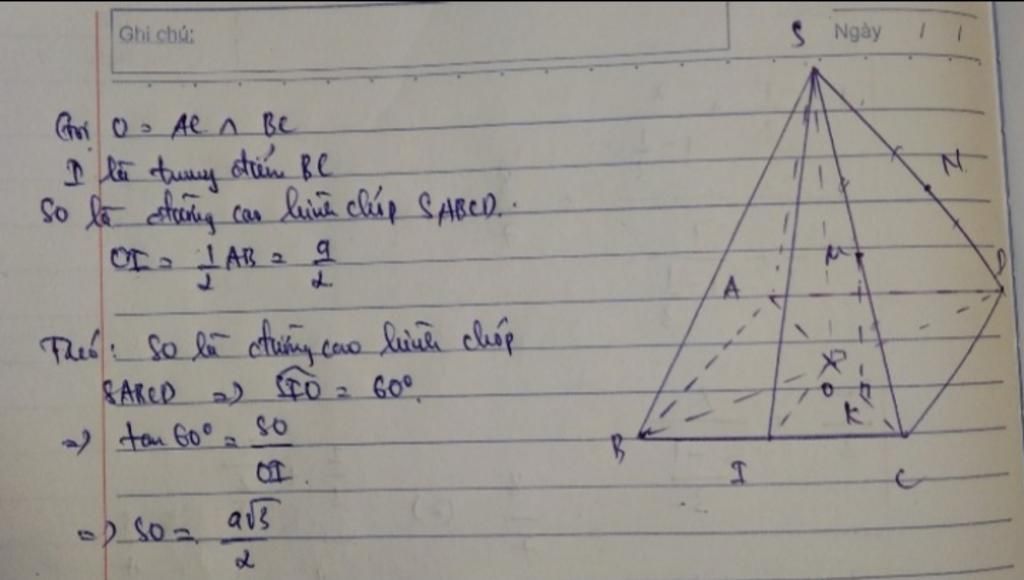 Ghi chú:
Ngày / /
Gọi O = AC ∩ BC
I là trung điểm BC
SO là đường cao hình chóp SABCD.
OI = 1/2 AB = a/2
Theo: SO là đường cao hình chóp
SABCD => SIO = 60°.
=> tan 60° = SO/OI.
=> SO = a√3/2
S
N
M
D
A
O
K
B
I
C